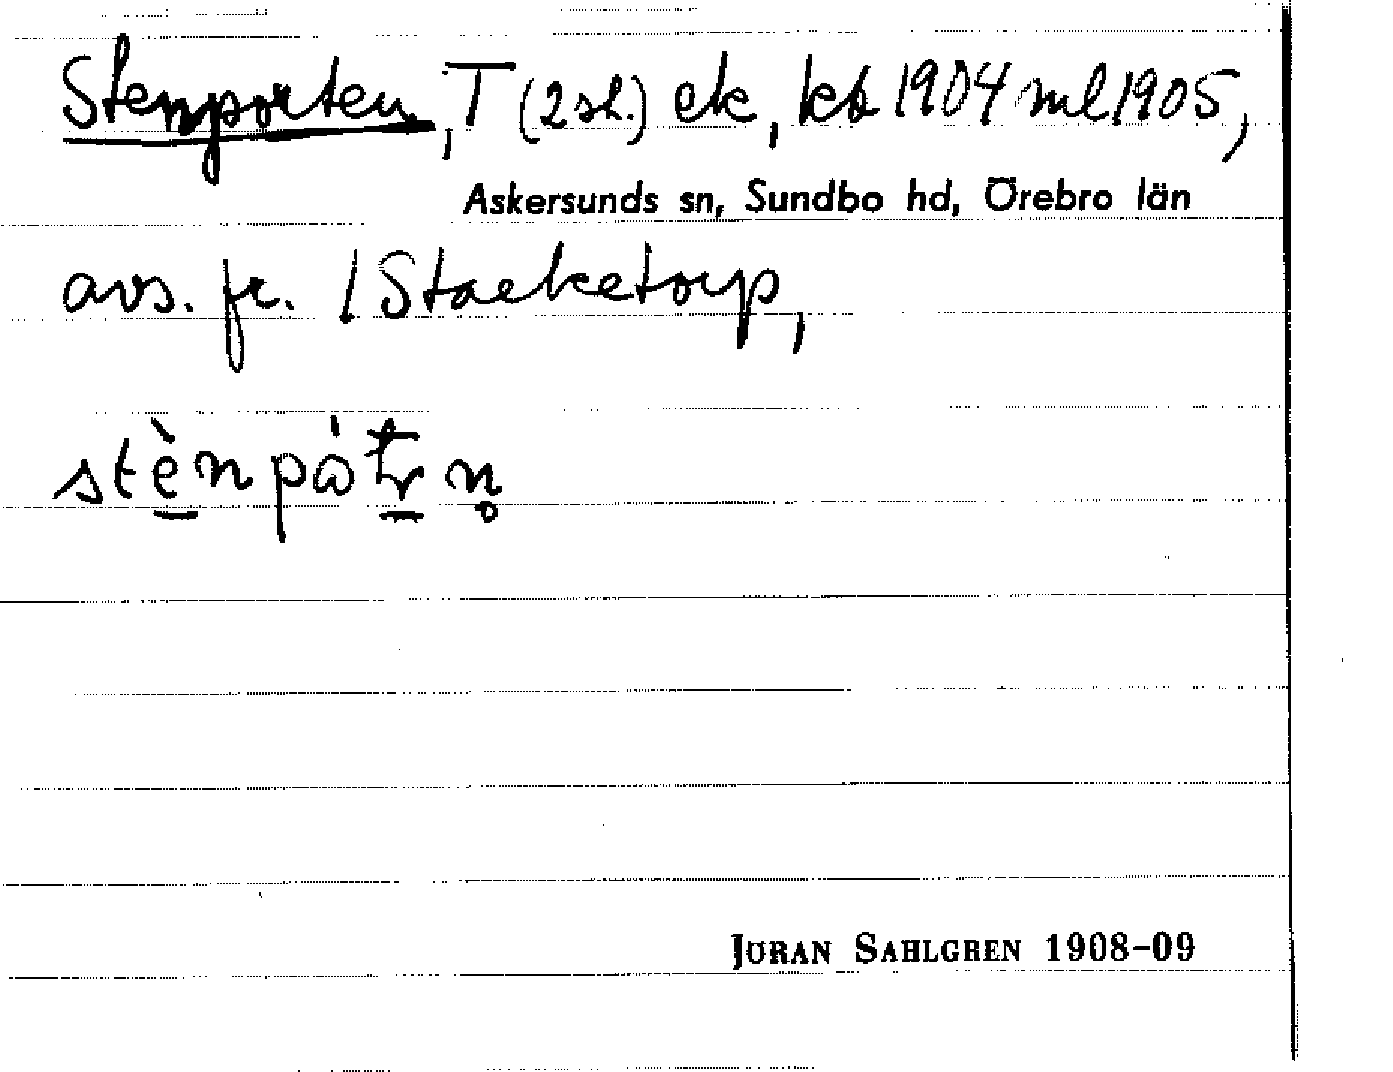 Stenporten, T (2 st.) ek, kb 1904 ml 1905,
Askersunds sn, Sundbo hd, Örebro län
avs. fr. / Stacketorp,
stènpåtṛn̥
JÖRAN SAHLGREN 1908-09